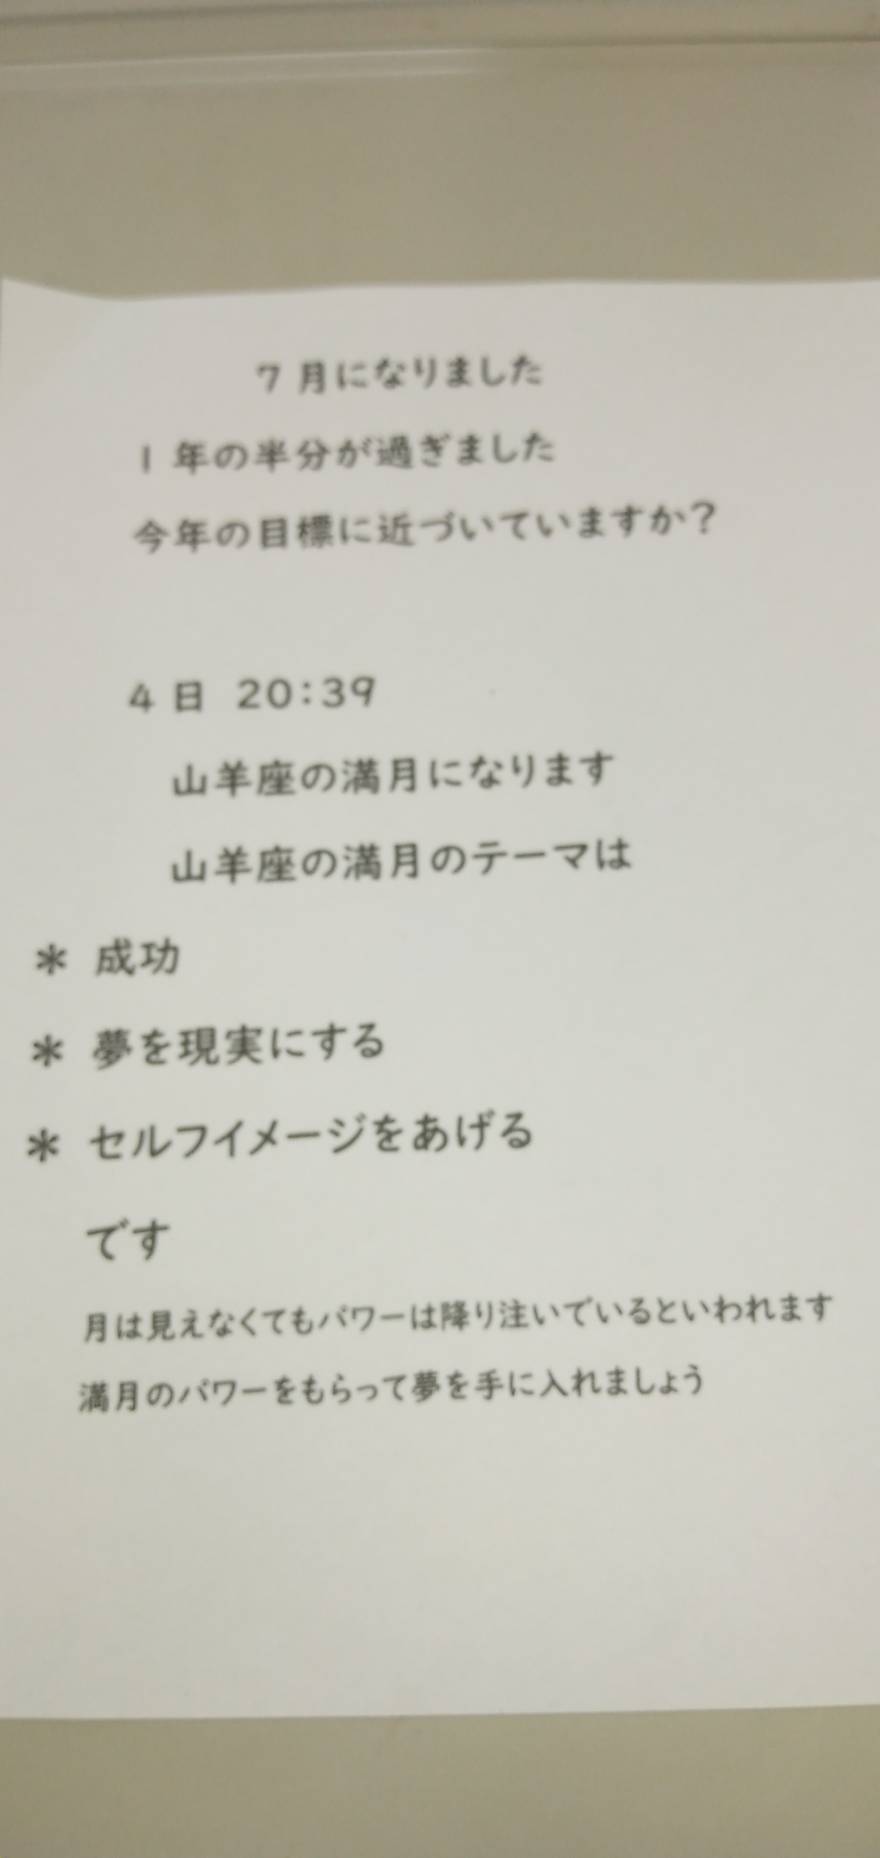 7 月になりました
1 年の半分が過ぎました
今年の目標に近づいていますか？
4 日 20：39
山羊座の満月になります
山羊座の満月のテーマは
＊ 成功
＊ 夢を現実にする
＊ セルフイメージをあげる
です
月は見えなくてもパワーは降り注いでいるといわれます
満月のパワーをもらって夢を手に入れましょう